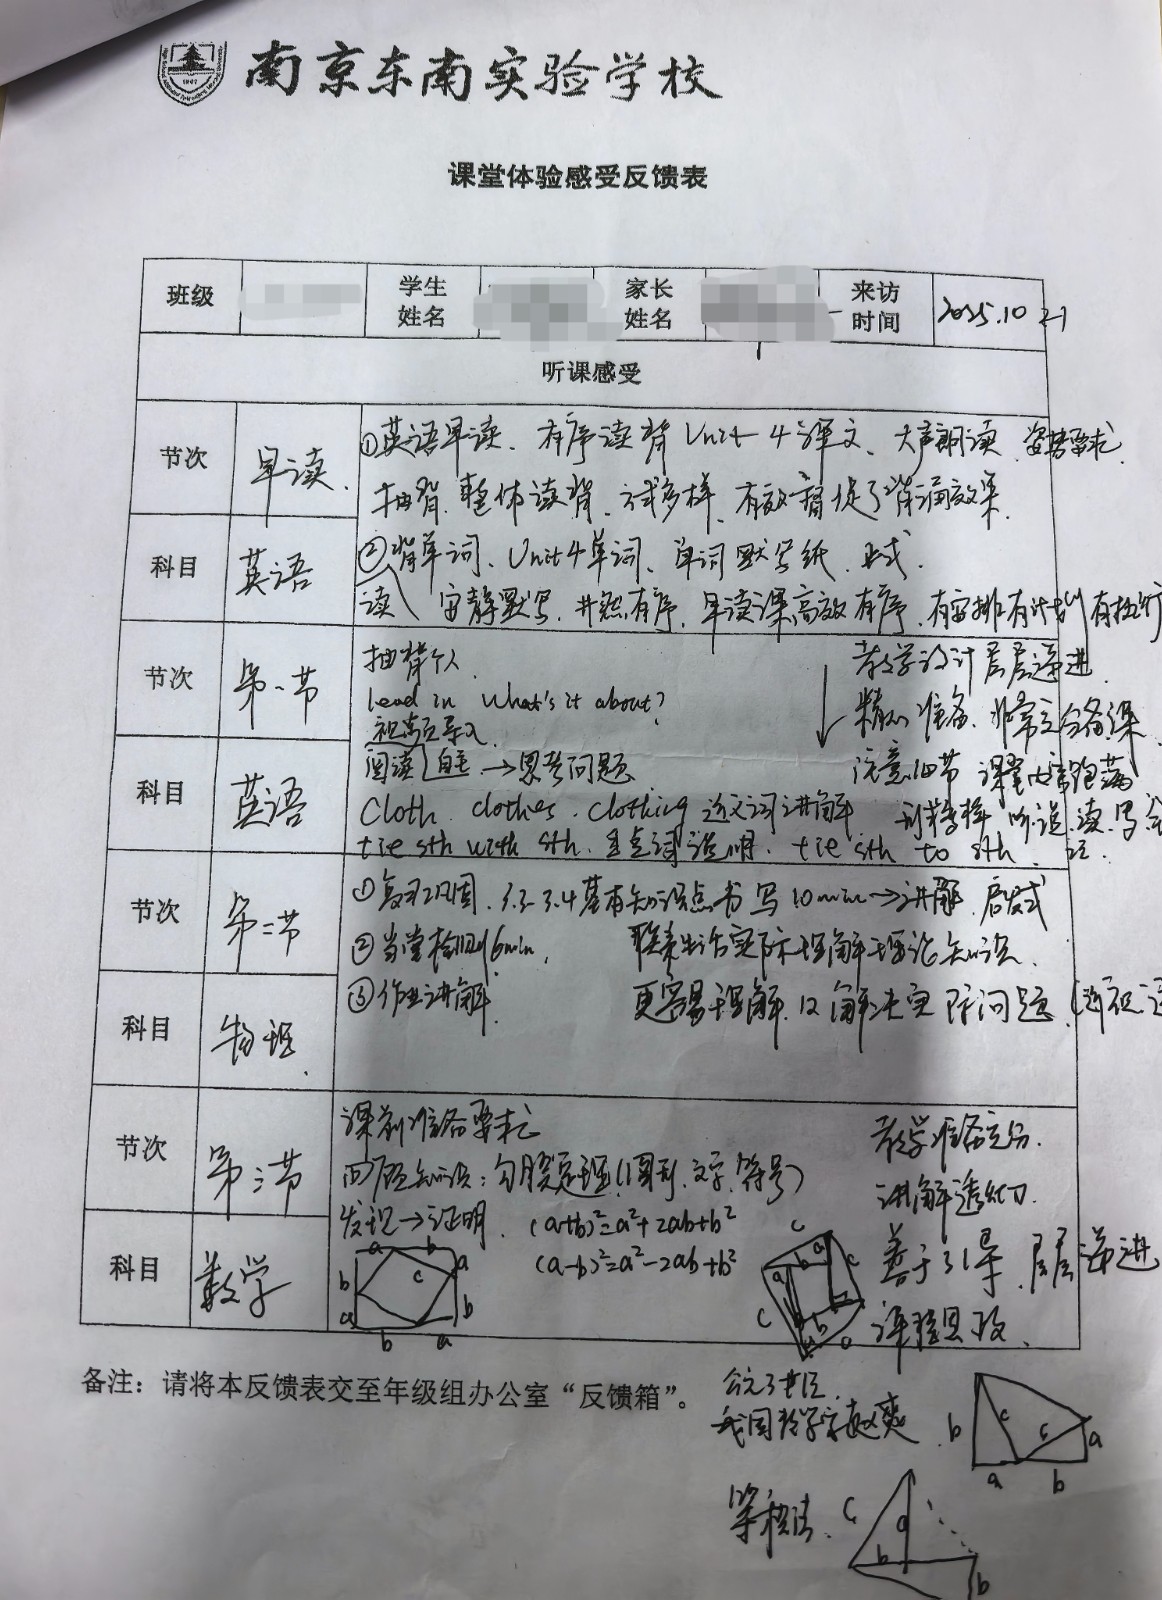 南京东南实验学校
课堂体验感受反馈表
班级
学生姓名
家长姓名
来访时间
2025.10.21
听课感受
节次
早读.
①英语早读、有序读背 Unit 4 课文、大声朗读、姿势要求
抽背、整体读背、方式多样、有效督促了背诵效果.
科目
英语
②背单词、Unit4单词、单词默写纸、正式.
读 安静默写、井然有序、早读课高效有序、有安排有计划有执行
节次
第一节
抽背个人
lead in what's it about?
视频导入
阅读 自主→思考问题
教学设计层层递进
精心准备、非常充分备课
注意细节 课堂内容饱满
科目
英语
Cloth. clothes. clothing 近义词讲解
形式多样 听、说、读、写
tie sth with sth. 重点词说明. tie sth to sth.
节次
第二节
①复习巩固. 3.3 3.4基本知识点书写10min→讲解 启发式
②当堂检测6min,
联系生活实际理解理论知识.
③作业讲解
更容易理解及解决实际问题.
科目
物理.
节次
第三节
课前准备要求
回顾知识:勾股定理(图形、文字、符号)
发现→证明. (a+b)²=a²+2ab+b²
(a-b)²=a²-2ab+b²
教学准备充分.
讲解透彻.
善于引导、层层递进
科目
数学
a b
b c a
a b
b a
c
a b c
c b
a
备注:请将本反馈表交至年级组办公室“反馈箱”。
公元3世纪,
我国数学家赵爽
b c c a
a b
等积法.
c a
b b